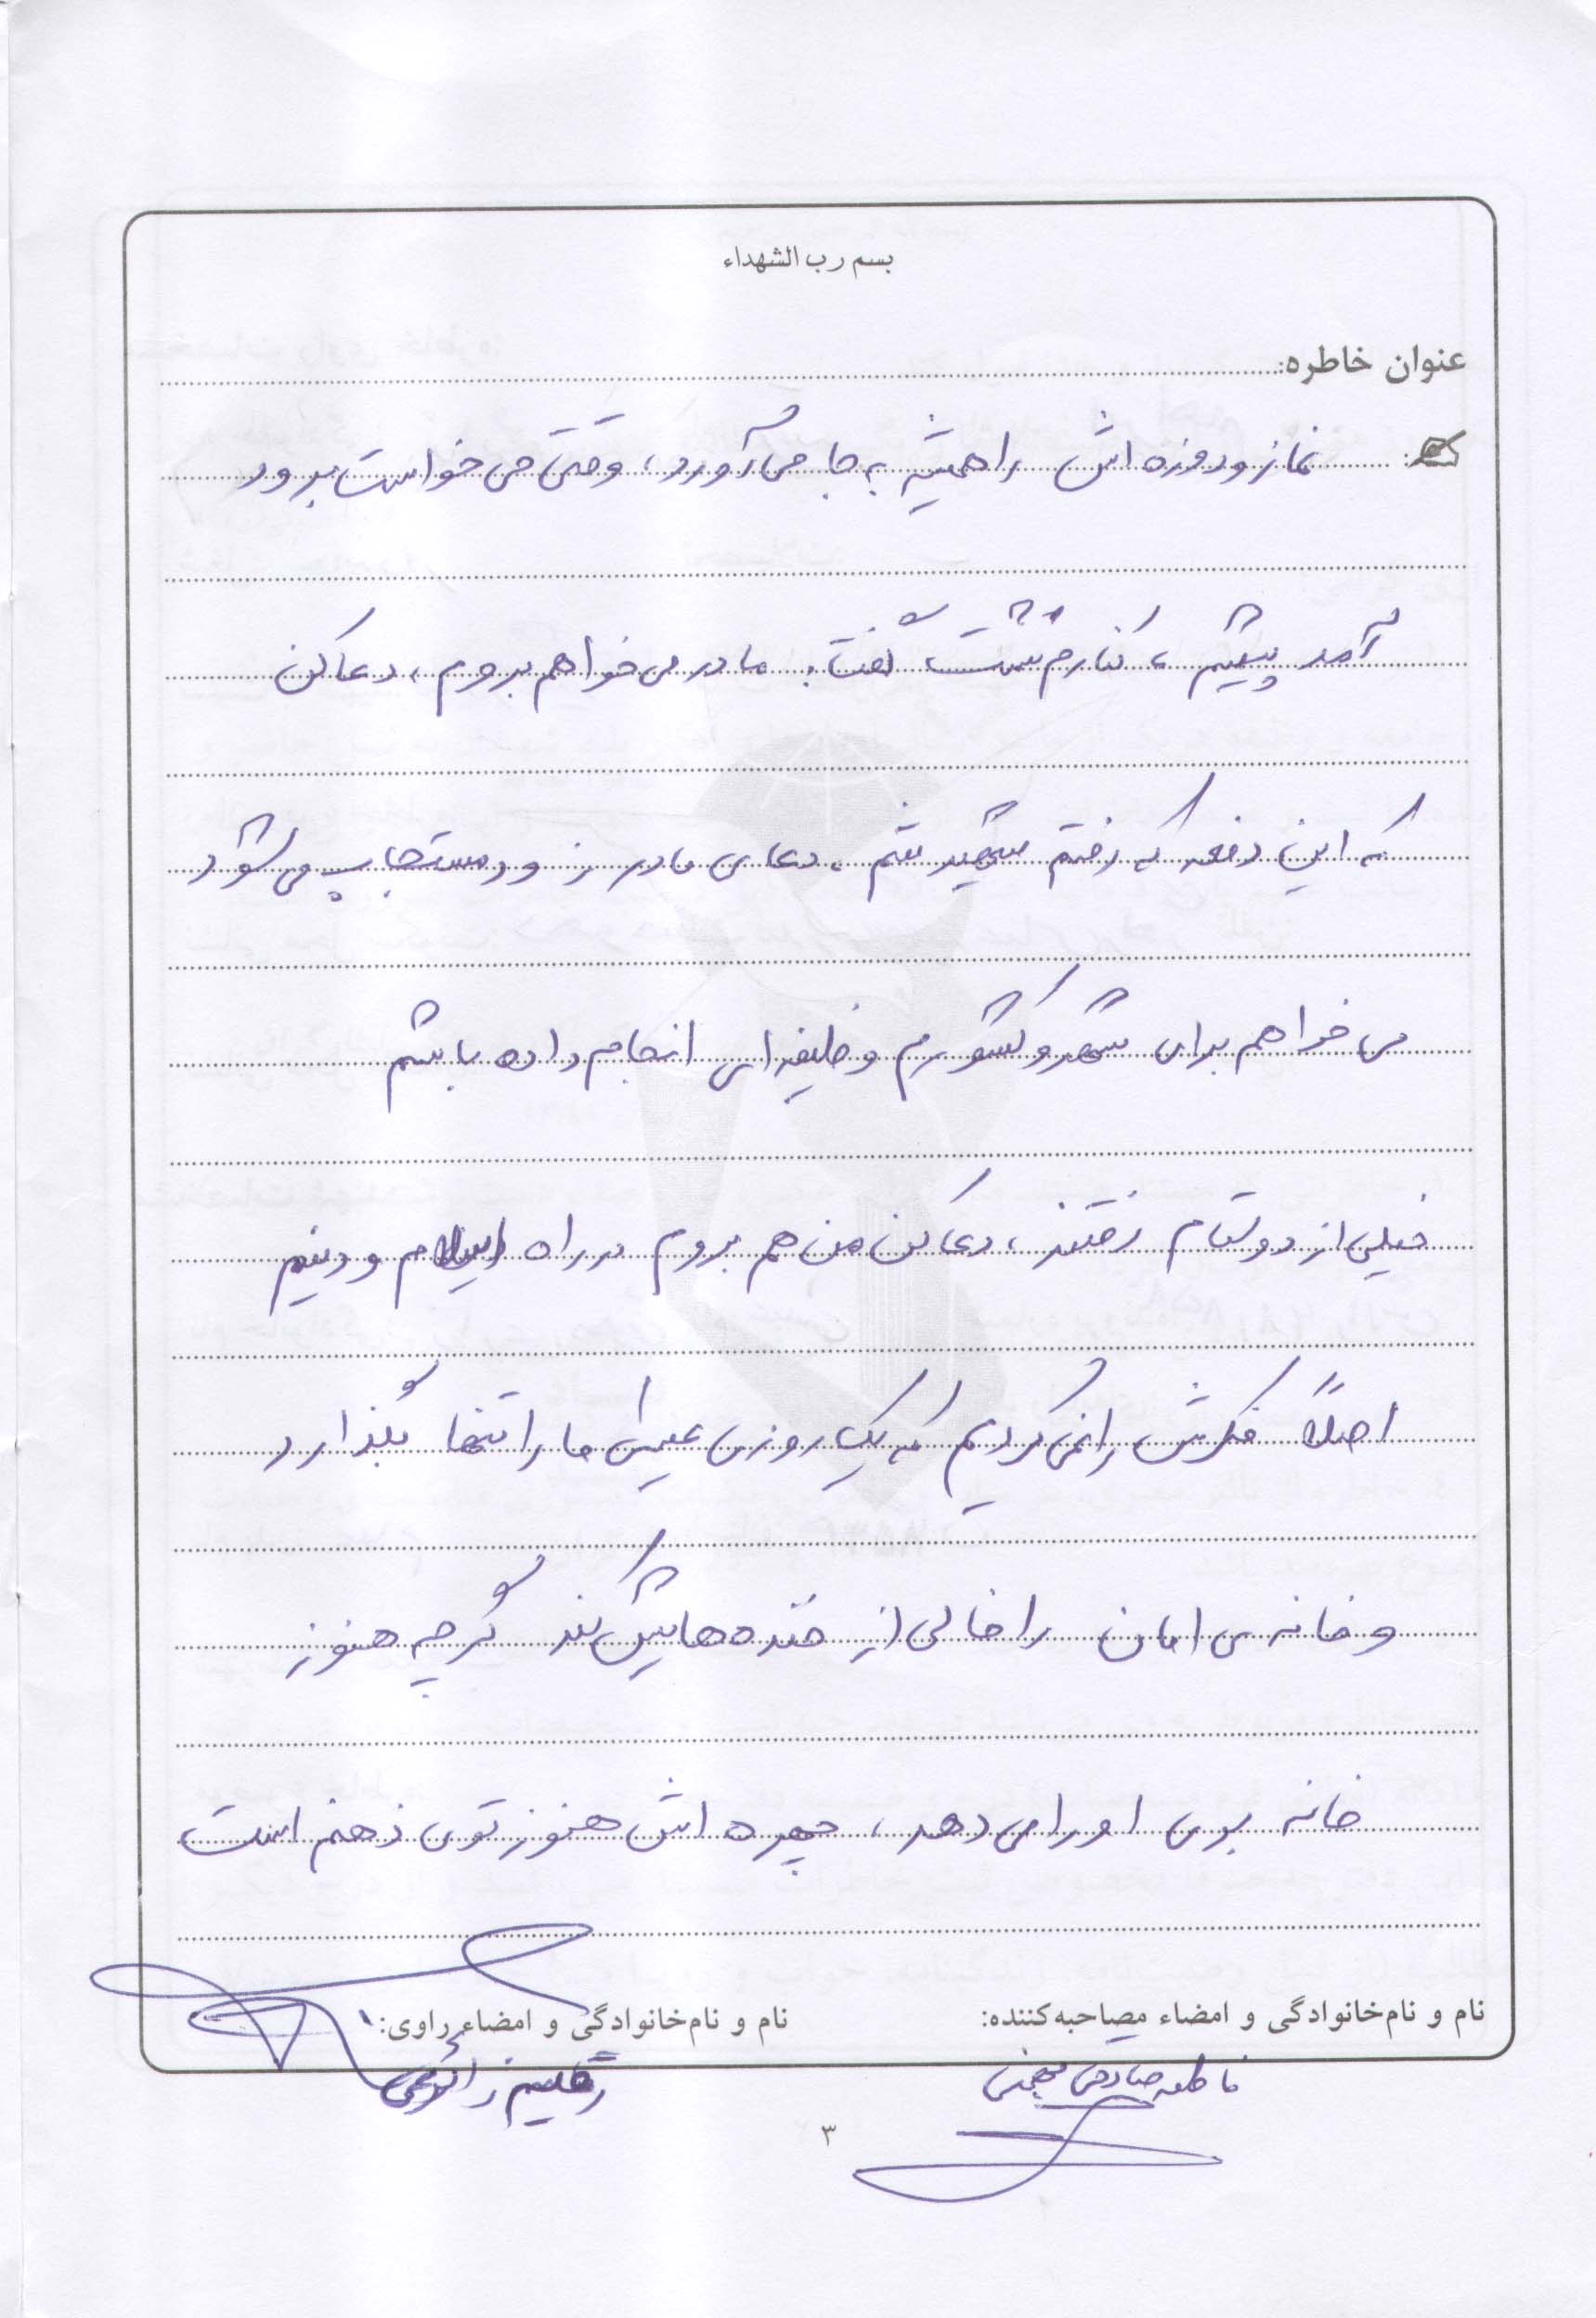 بسم رب الشهداء
عنوان خاطره:
نماز و روزه اش را همیشه به جا می آورد، وقتی می خواست برود
آمد پیشم، کنارم نشست گفت: مادر می خواهم بروم، دعا کن
که این دفعه که رفتم شهید شم، دعای مادر زود مستجاب می شود
می خواهم برای شهر و کشورم وظیفه ای انجام داده باشم
خیلی از دوستام رفتند، دعا کن من هم بروم در راه اسلام و دینم
اصلاً فکرش را نمی کردیم که یک روزی عیسی ما را تنها بگذارد
و خانه ی امان را خالی از خنده هایش کند گرچه هنوز
خانه بوی او را می دهد، چهره اش هنوز توی ذهنم است
نام و نام‌خانوادگی و امضاء مصاحبه‌کننده:
نام و نام‌خانوادگی و امضاء راوی:
فاطمه صادقی
۳